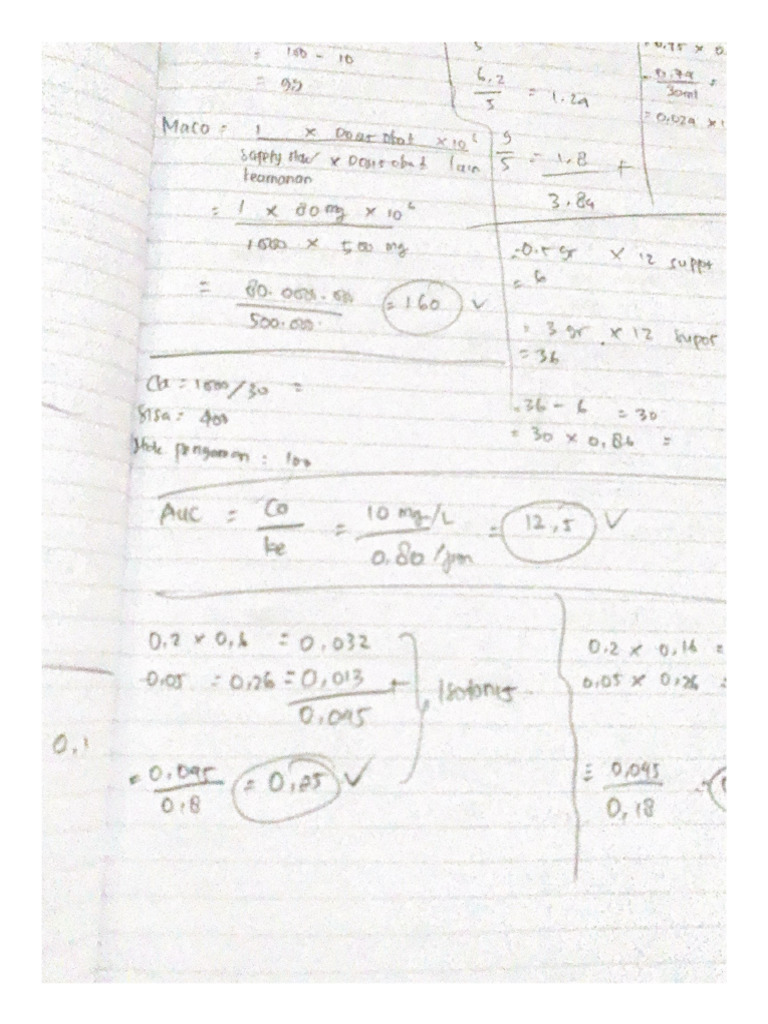 = 100 - 10
= 99
Maco = 1 × Dosis Obat × 10⁶
Supply Max × Dosis obat lain
keamanan
= 1 × 80 mg × 10⁶
1000 × 500 mg
=
500.000
= 160 ✓
= 1000/30 =
Sisa = 400
pengaman : 100
5
6,2
5
= 1.24
9
5
= 1.8 +
3.84
= 0.5 gr × 12 supp
= 6
= 3 gr × 12 supos
= 36
= 36 - 6 = 30
= 30 × 0,86 =
30ml
AUC = Co
ke
= 10 mg/L
0.80 /jam
= 12,5 ✓
0,2 × 0,16 = 0,032
0,05 = 0,26 = 0,013 +
0,045
Isotonis
= 0,045
0,18
= 0,25 ✓
0,2 × 0,16 =
0,05 × 0,26 =
= 0,045
0,18
=
0,1